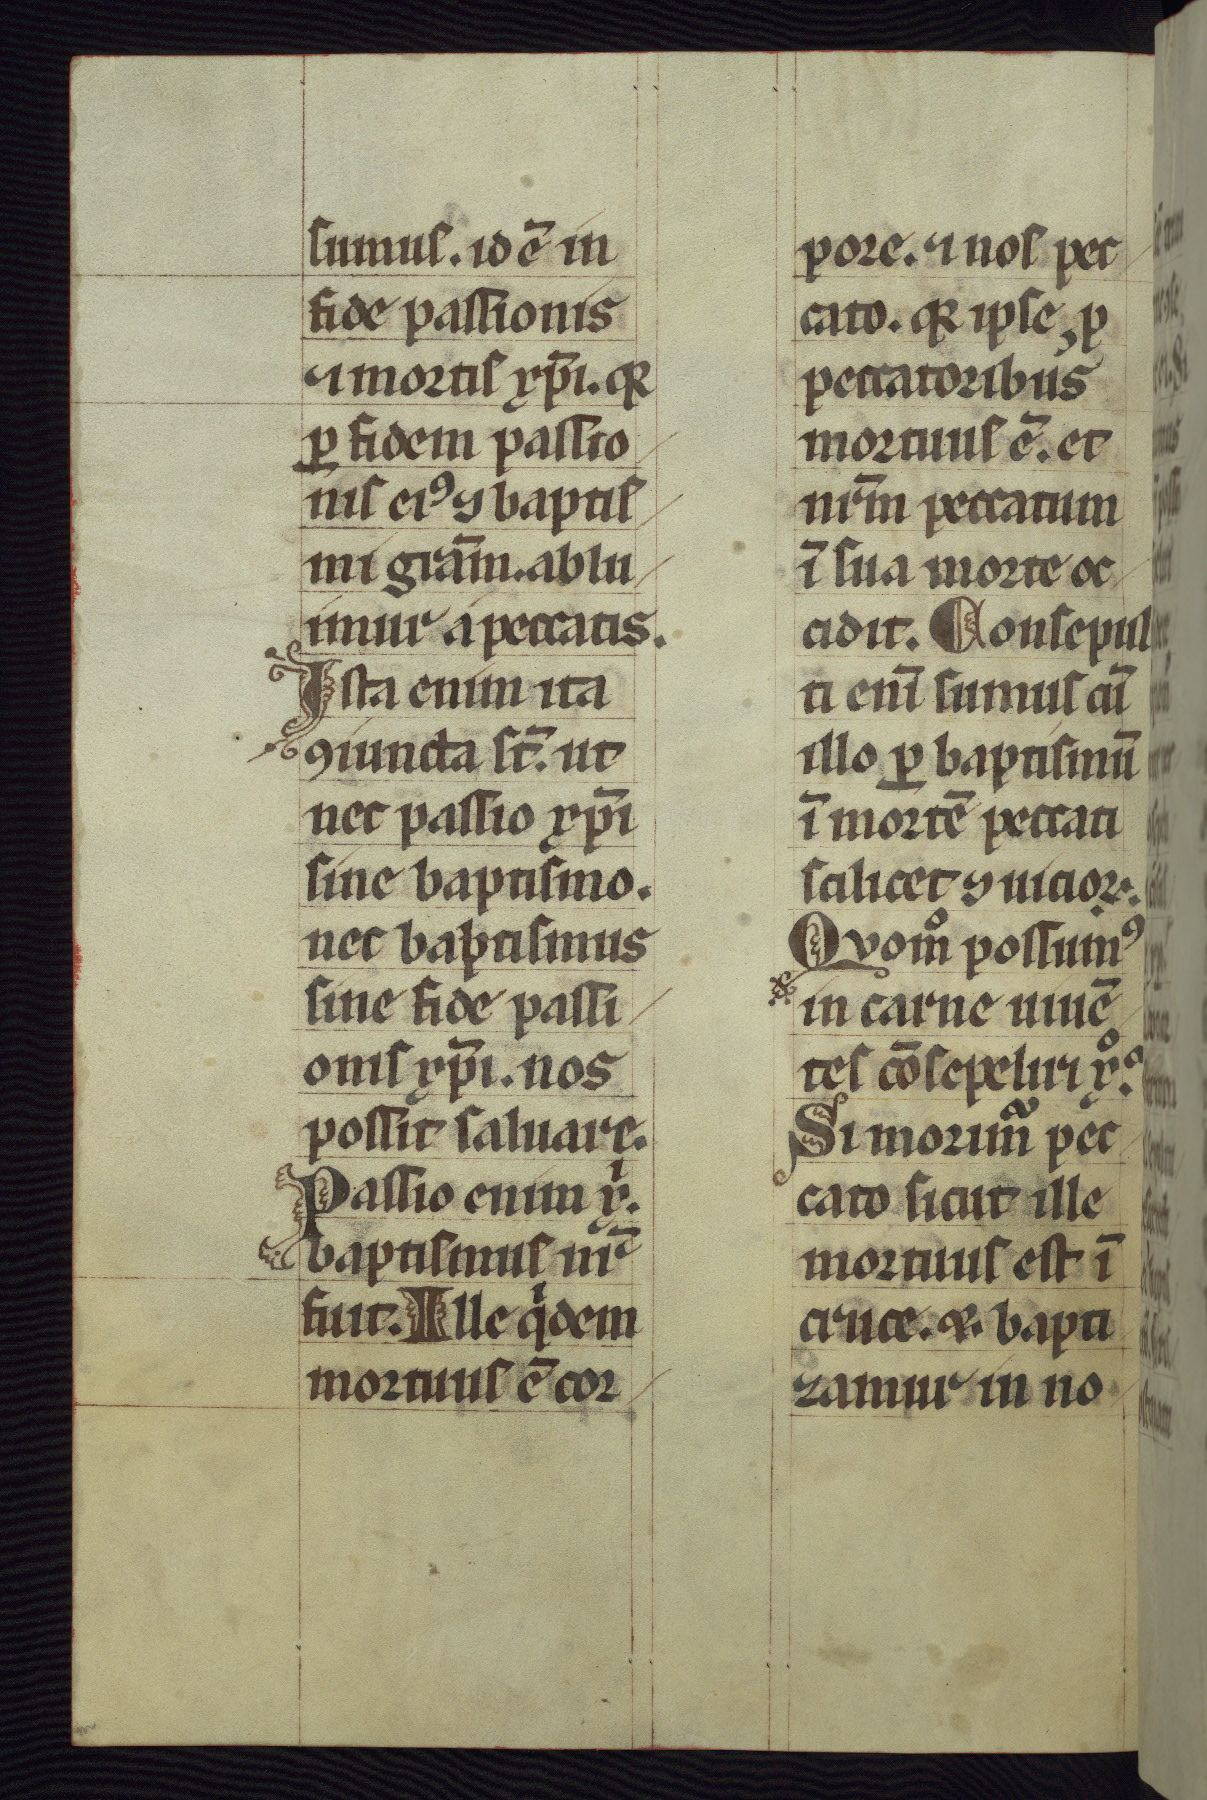 sumus. id ē in
fide passionis
⁊ mortis xp̄i. qꝛ
ꝑ fidem passio
nis ei⁹ ꝯ baptis
mi grām. ablu
imur a peccatis.
Ista enim ita
ꝯiuncta st̄. ut
nec passio xp̄i
sine baptismo.
nec babtismus
sine fide passi
onis xp̄i. nos
possit saluare.
Passio enim xͥ.
baptismus nr̄
fuit. Ille qͥdem
mortuus ē cor
pore. ⁊ nos pec
cato. qꝛ ipse ꝓ
peccatoribus
mortuus ē. et
nr̄m peccatum
ī sua morte oc
cidit. Consepul
ti eni̅ sumus cū
illo ꝑ baptismū
ī mortē peccati
scilicet ꝯ uicioꝝ.
Qvom̊ possum⁹
in carne uiuē
tes cōsepeliri xͦ.ˀ
Si morimᷓ pec
cato sicut ille
mortuus est ī
cruce. qꝛ. bapti
zamur in no